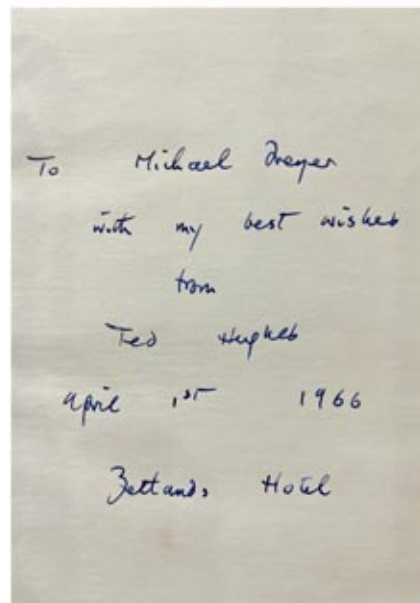 To Michael Dreyer
with my best wishes
from
Ted Hughes
April 1st 1966
Zetlands Hotel